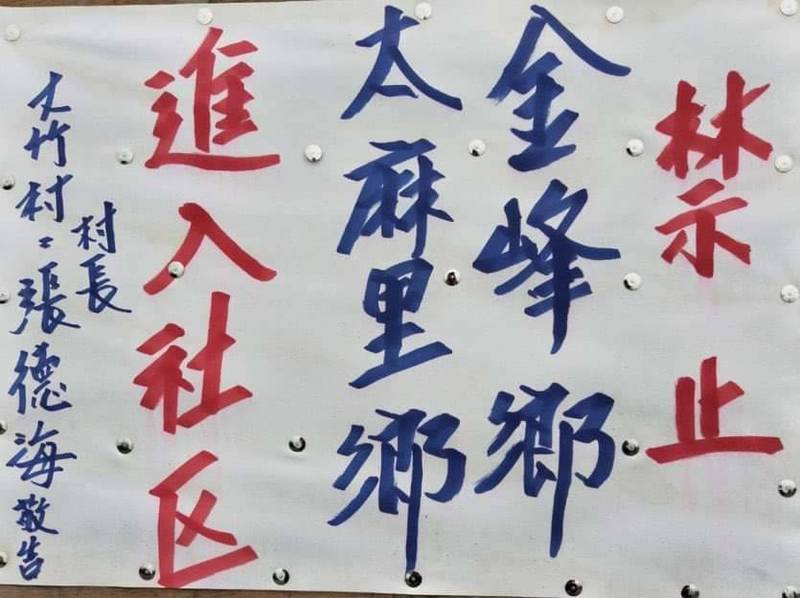 禁止
金峰鄉
太麻里鄉
進入社区
大竹村々張德海敬告
村長